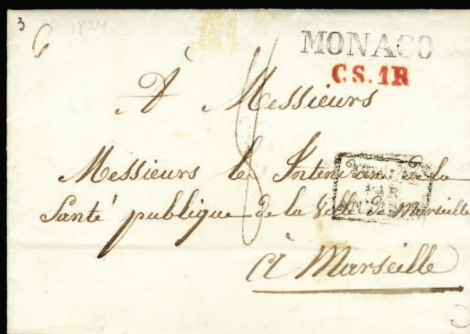 3
MONACO
C.S.1R
À Messieurs
Messieurs les Intendants de la
Santé publique de la Ville de Marseille
PAR
à Marseille